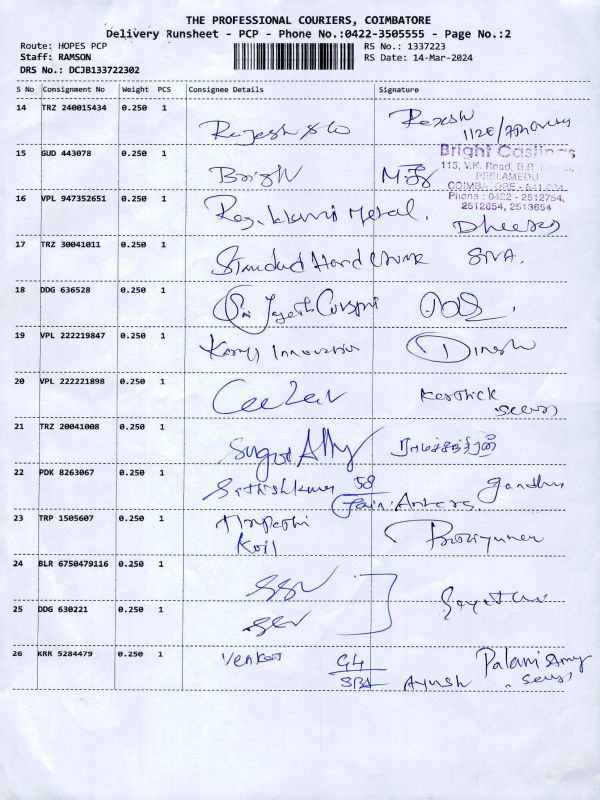 THE PROFESSIONAL COURIERS, COIMBATORE
Delivery Runsheet - PCP - Phone No.:0422-3505555 - Page No.:2
Route: HOPES PCP
Staff: RAMSON
DRS No.: DCJB133722302
RS No.: 1337223
RS Date: 14-Mar-2024
S No Consignment No Weight PCS Consignee Details Signature
14 TRZ 240015434 0.250 1 Rajesh & Co Rajesh
15 GUD 443078 0.250 1 Bright
Bright Castings
115, V.K. Road, B.R.
PEELAMEDU
COIMBATORE - 641 004
Phone : 0422 - 2512754,
2512654, 2513654
16 VPL 947352651 0.250 1 Metal.
17 TRZ 30041011 0.250 1 Standard Hard Chrome SIVA.
18 DDG 636528 0.250 1 Sri
19 VPL 222219847 0.250 1 Innovation Dinesh
20 VPL 222221898 0.250 1
21 TRZ 20041008 0.250 1 Sugot Ally ராமச்சந்திரன்
22 PDK 8263067 0.250 1 Sathishkumar 58 Gandhi
Jain Antara
23 TRP 1505607 0.250 1 Thirupathi
Koil
24 BLR 6750479116 0.250 1 SSV
25 DDG 630221 0.250 1 SSV Gayathri
26 KRR 5284479 0.250 1 Venkat G4 Palanisamy
SBA Ayush